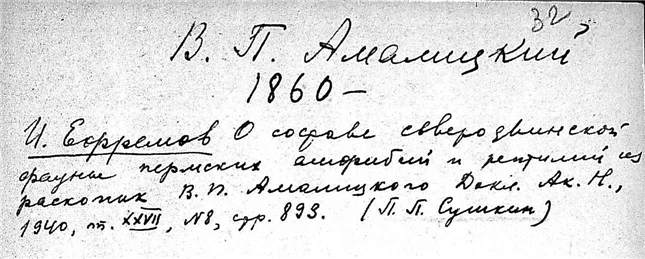 32
В. П. Амалицкий
1860 –
И. Ефремов О составе северодвинской
фауны пермских амфибий и рептилий из
раскопок В. П. Амалицкого Докл. Ак. Н.,
1940, т. XXVII, №8, стр. 893. (П. П. Сушкин)